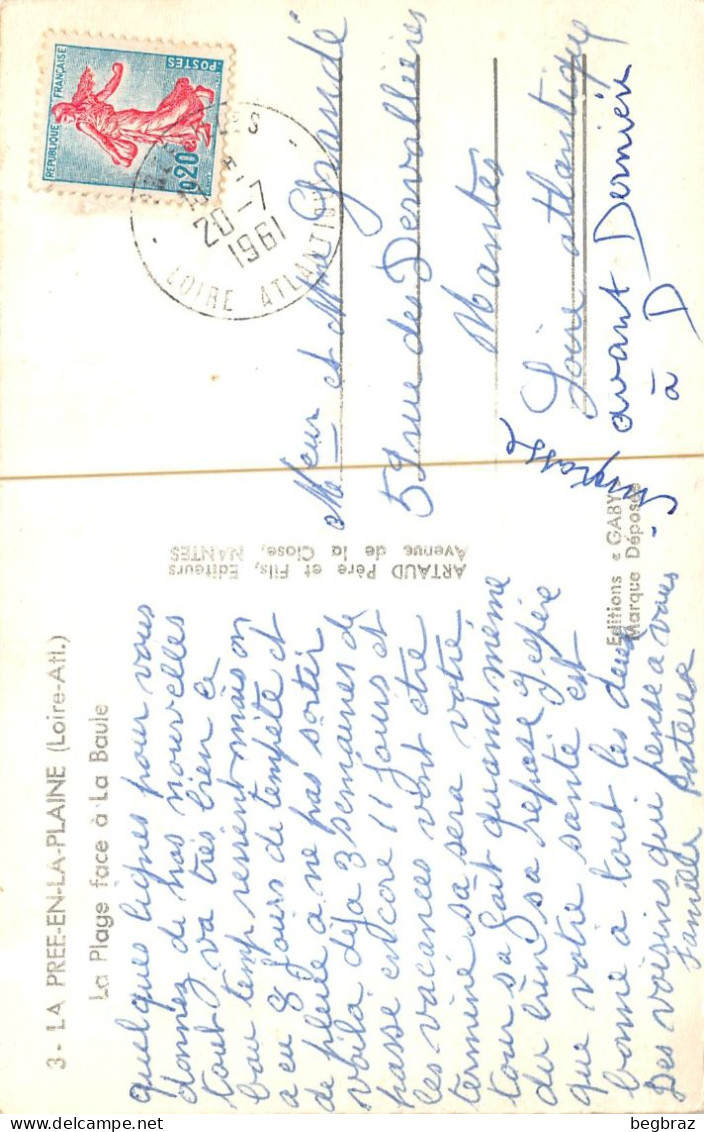 3 - LA PREE-EN-LA-PLAINE (Loire-Atl.)
La Plage face à La Baule
quelques lignes pour vous
donnez de nos nouvelles
tout va très bien le
bau temp revient mais on
a eu 8 jours de tempête et
de pluie a ne pas sortir
voila déja 3 semaines de
passe encore 11 jours et
les vacances vont etre
terminé sa sera votre
tour sa fait quand même
du bien sa repose J'espère
que votre santé est
bonne a tout les deux
Des voisins qui pense a vous
famille
ARTAUD Père et Fils, Editeurs
Avenue de la Close, NANTES
Editions « GABY »
Marque Déposée
REPUBLIQUE FRANÇAISE
POSTES
0,20
20-7
1961
LOIRE ATLANTIQUE
Meur et Mme Grandé
59 rue des Dervallières
Nantes
Loire atlantique
avant Dernière
à D
begbraz